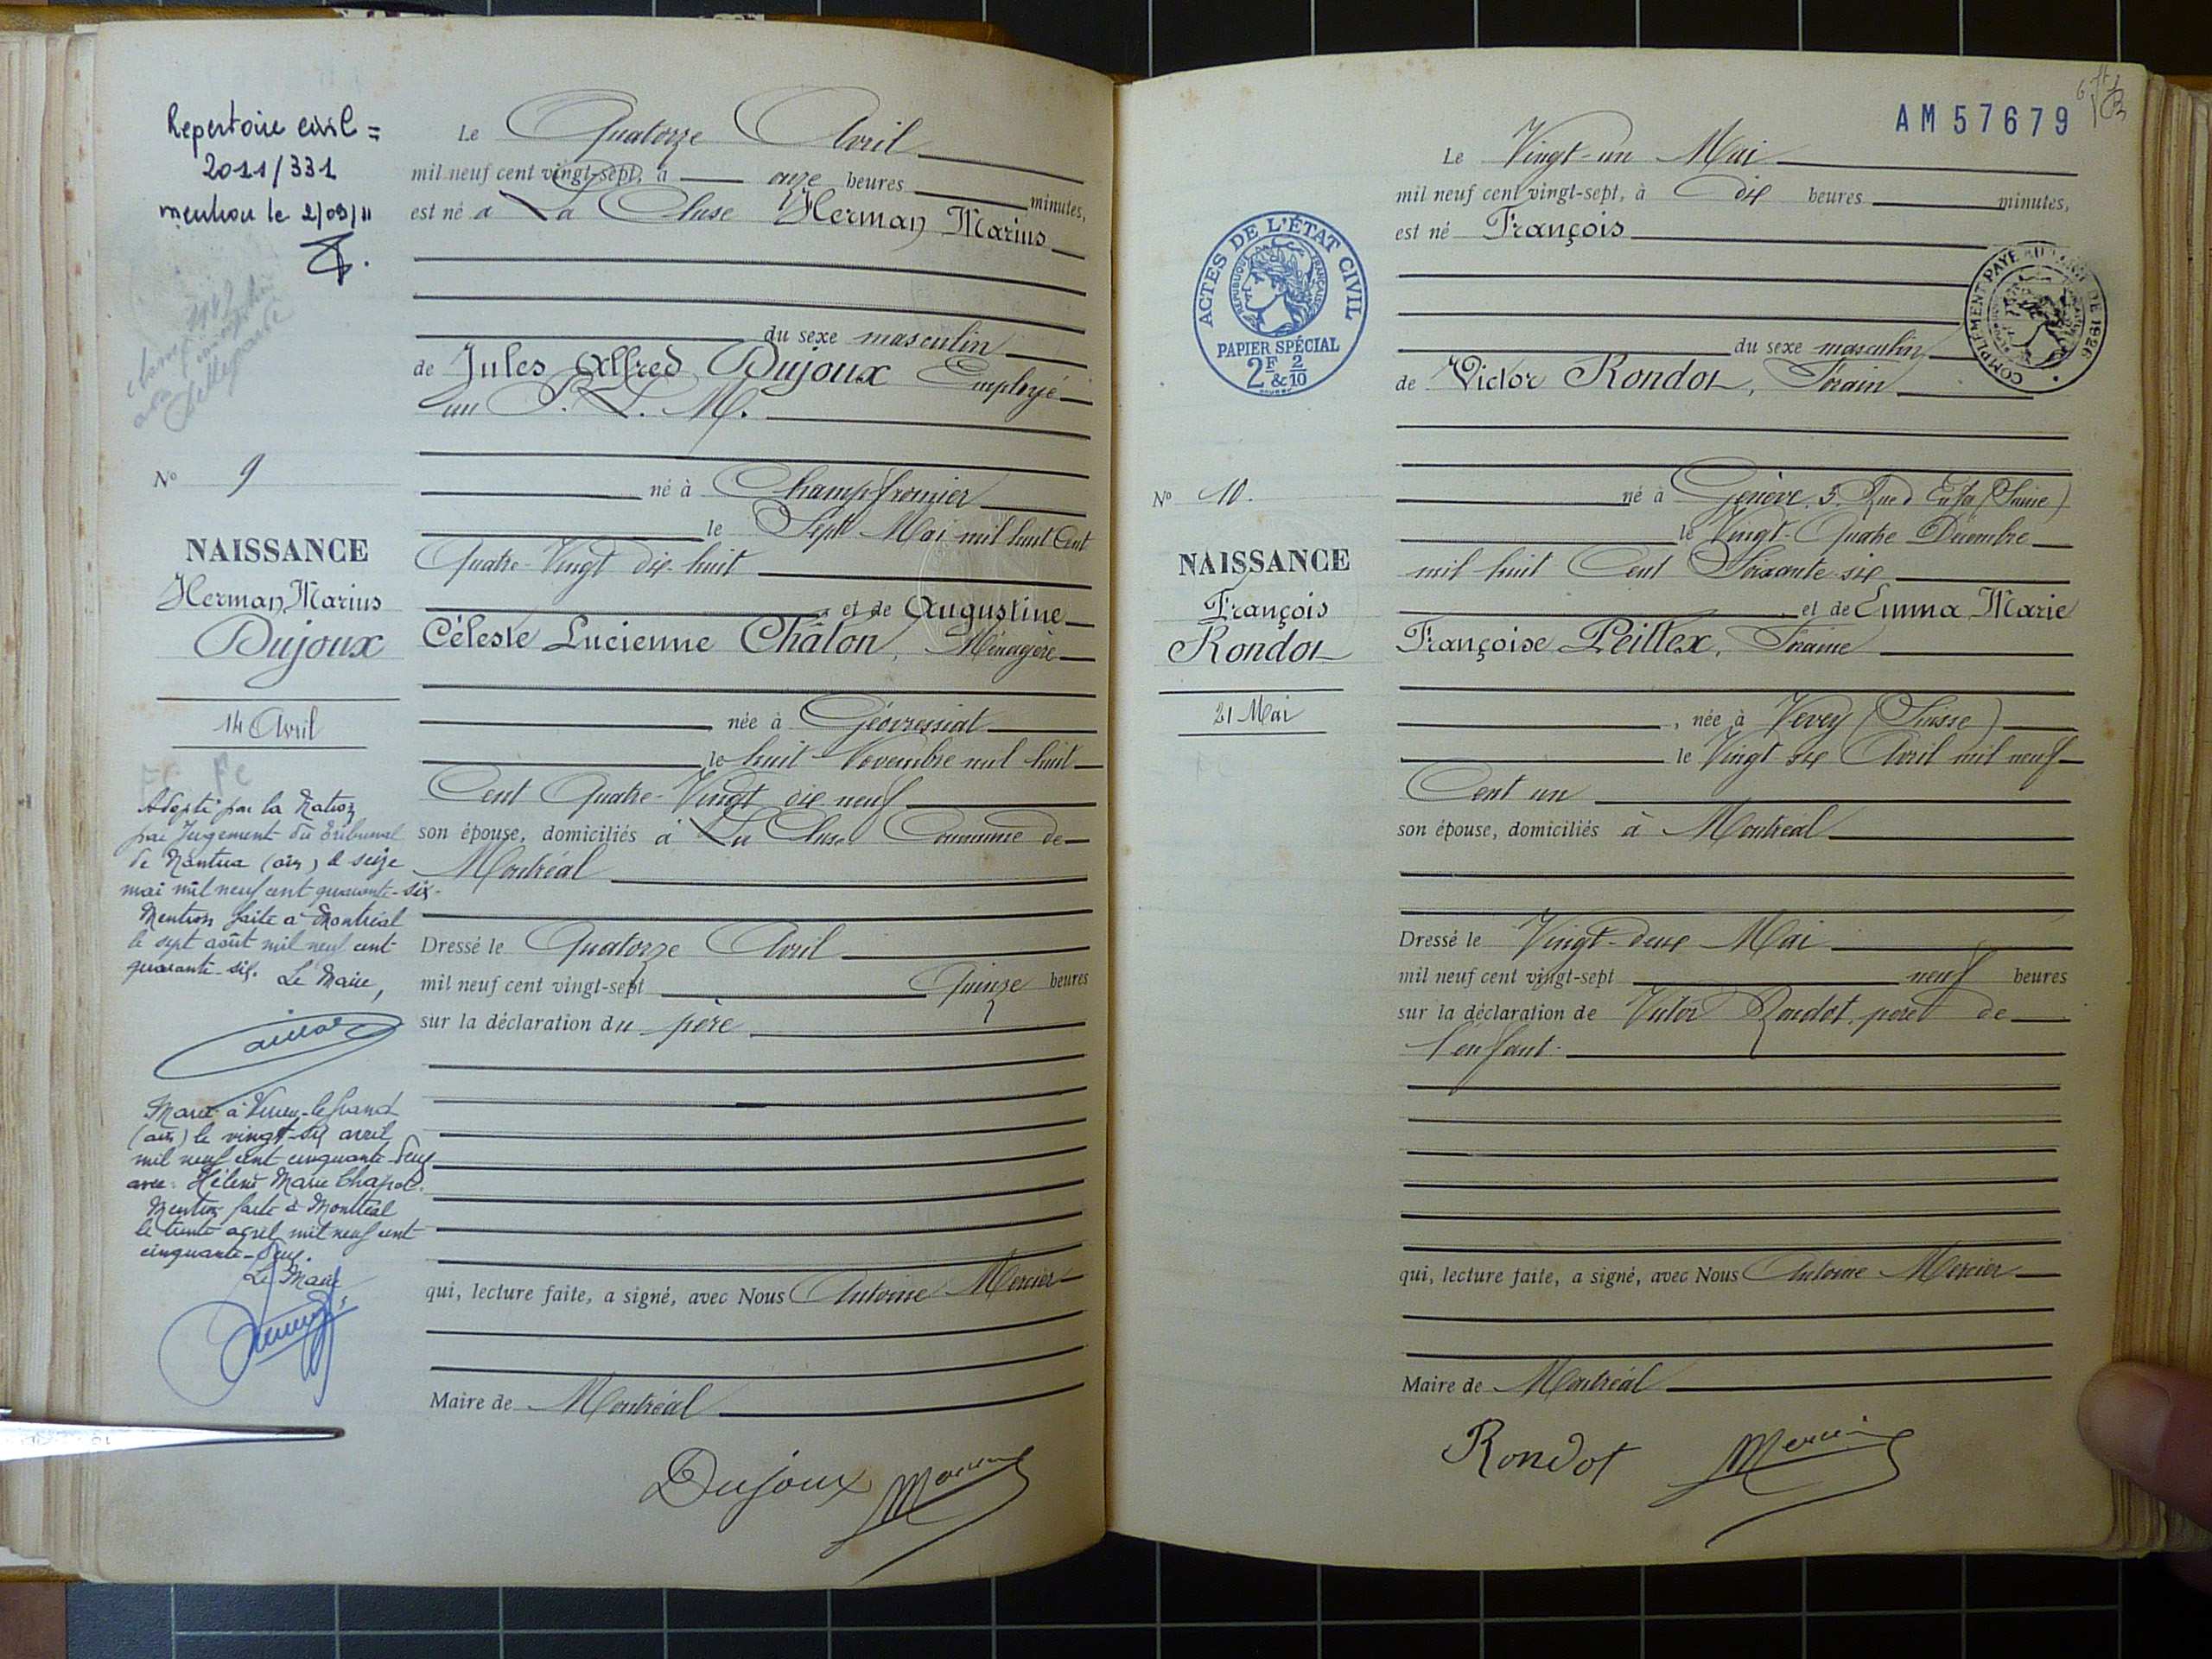 Repertoire civil =
2011/331
mention le 2/09/11
Nº 9
NAISSANCE
Herman, Marius
Dujoux
14 Avril
Adopté par la Nation
par Jugement du Tribunal
de Nantua (ain) le seize
mai mil neuf cent quarante-six.
Mention faite à Montréal
le sept août mil neuf cent
quarante-six. Le Maire,
Marié à
(ain) le vingt-six avril
mil neuf cent cinquante-deux
avec Hélène Marie Chapot.
Mention faite à Montréal
le trente avril mil neuf cent
cinquante-deux.
Le Maire
Le Quatorze Avril
mil neuf cent vingt-sept, à onze heures minutes,
est né à La Cluse Herman Marius
du sexe masculin
de Jules Alfred Dujoux Employé
au P. L. M.
né à Champfromier
le Sept Mai mil huit Cent
Quatre-Vingt dix-huit
et de Augustine
Céleste Lucienne Châlon, Ménagère
née à Géovressiat
le huit Novembre mil huit
Cent Quatre-Vingt dix neuf
son épouse, domiciliés à La Cluse Commune de
Montréal
Dressé le Quatorze Avril
mil neuf cent vingt-sept Quinze heures
sur la déclaration du père
qui, lecture faite, a signé, avec Nous Antoine Mercier
Maire de Montréal
Dujoux Mercier
AM 57679
ACTES DE L'ÉTAT CIVIL
RÉPUBLIQUE FRANÇAISE
PAPIER SPÉCIAL
2F & 2/10
Nº 10.
NAISSANCE
François
Rondot
21 Mai
Le Vingt-un Mai
mil neuf cent vingt-sept, à dix heures minutes,
est né François
COMPLÉMENT PAYÉ DE 1926
du sexe masculin
de Victor Rondot, Forain
né à Genève, 3, Rue d'Enfer (Suisse)
le Vingt-Quatre Décembre
mil huit Cent Soixante-six
et de Emma Marie
Françoise Peillex, Foraine
, née à Vevey (Suisse)
le Vingt six Avril mil neuf
Cent un
son épouse, domiciliés à Montréal
Dressé le Vingt-deux Mai
mil neuf cent vingt-sept neuf heures
sur la déclaration de Victor Rondot, père de
l'enfant.
qui, lecture faite, a signé, avec Nous Antoine Mercier
Maire de Montréal
Rondot Mercier